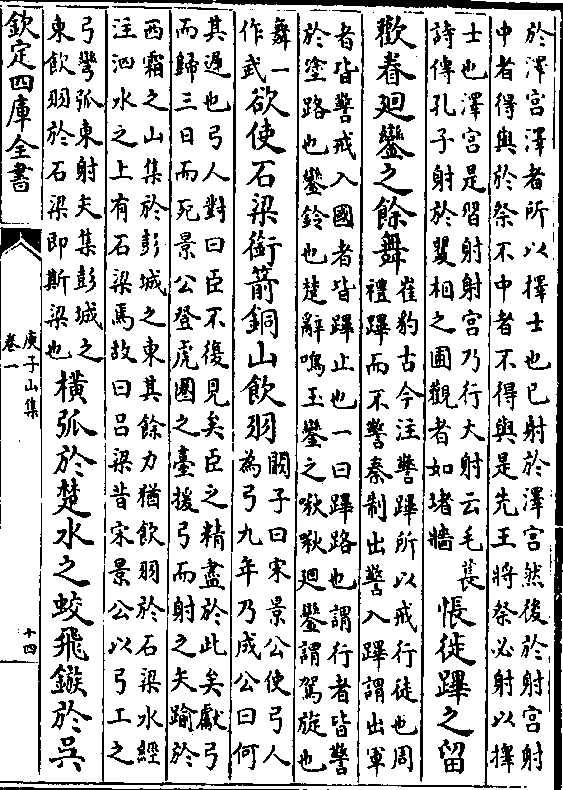 於澤宫澤者所以擇士也已射於澤宫然後於射宫射
中者得與於祭不中者不得與是先王將祭必射以擇
士也澤宫是習射射宫乃行大射云毛萇
詩傳孔子射於矍相之圃觀者如堵牆
悵徙蹕之留
歡眷廻鑾之餘舞
崔豹古今注警蹕所以戒行徒也周
禮蹕而不警秦制出警入蹕謂出軍
者皆警戒入國者皆蹕止也一曰蹕路也謂行者皆警
於塗路也鑾鈴也楚辭鳴玉鑾之啾啾廻鑾謂駕旋也
舞一
作武
欲使石梁銜箭銅山飲羽
闞子曰宋景公使弓人
為弓九年乃成公曰何
其遲也弓人對曰臣不復見矣臣之精盡於此矣獻弓
而歸三日而死景公登虎圈之臺援弓而射之矢踰於
西霜之山集於彭城之東其餘力猶飲羽於石梁水經
注泗水之上有石梁焉故曰吕梁昔宋景公以弓工之
弓彎弧東射矢集彭城之
東飲羽於石梁即斯梁也
横弧於楚水之蛟飛鏃於吳
欽定四庫全書
庾子山集
卷一
十四